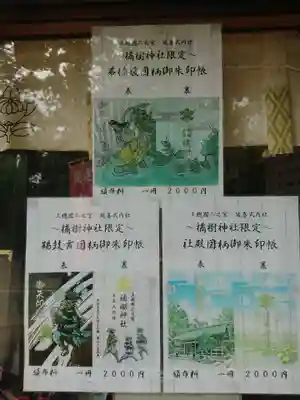 上総国二之宮 延喜式内社
〜橘樹神社限定〜
弟橘媛図柄御朱印帳
表 裏
頒布料 一冊 2000円
上総国二之宮 延喜式内社
〜橘樹神社限定〜
図柄御朱印帳
表 裏
橘樹神社
頒布料 一冊 2000円
上総国二之宮 延喜式内社
〜橘樹神社限定〜
社殿図柄御朱印帳
表 裏
頒布料 一冊 2000円